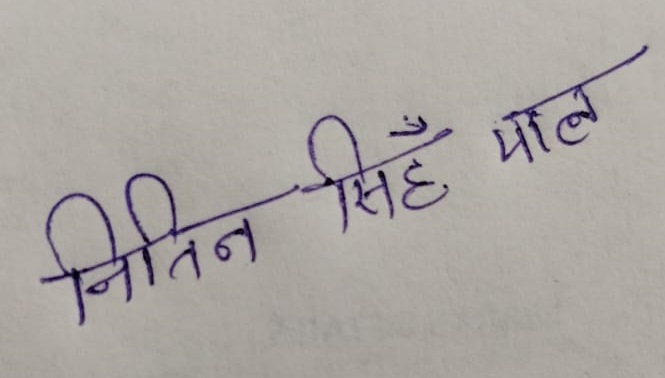 नितिन सिहँ पाल